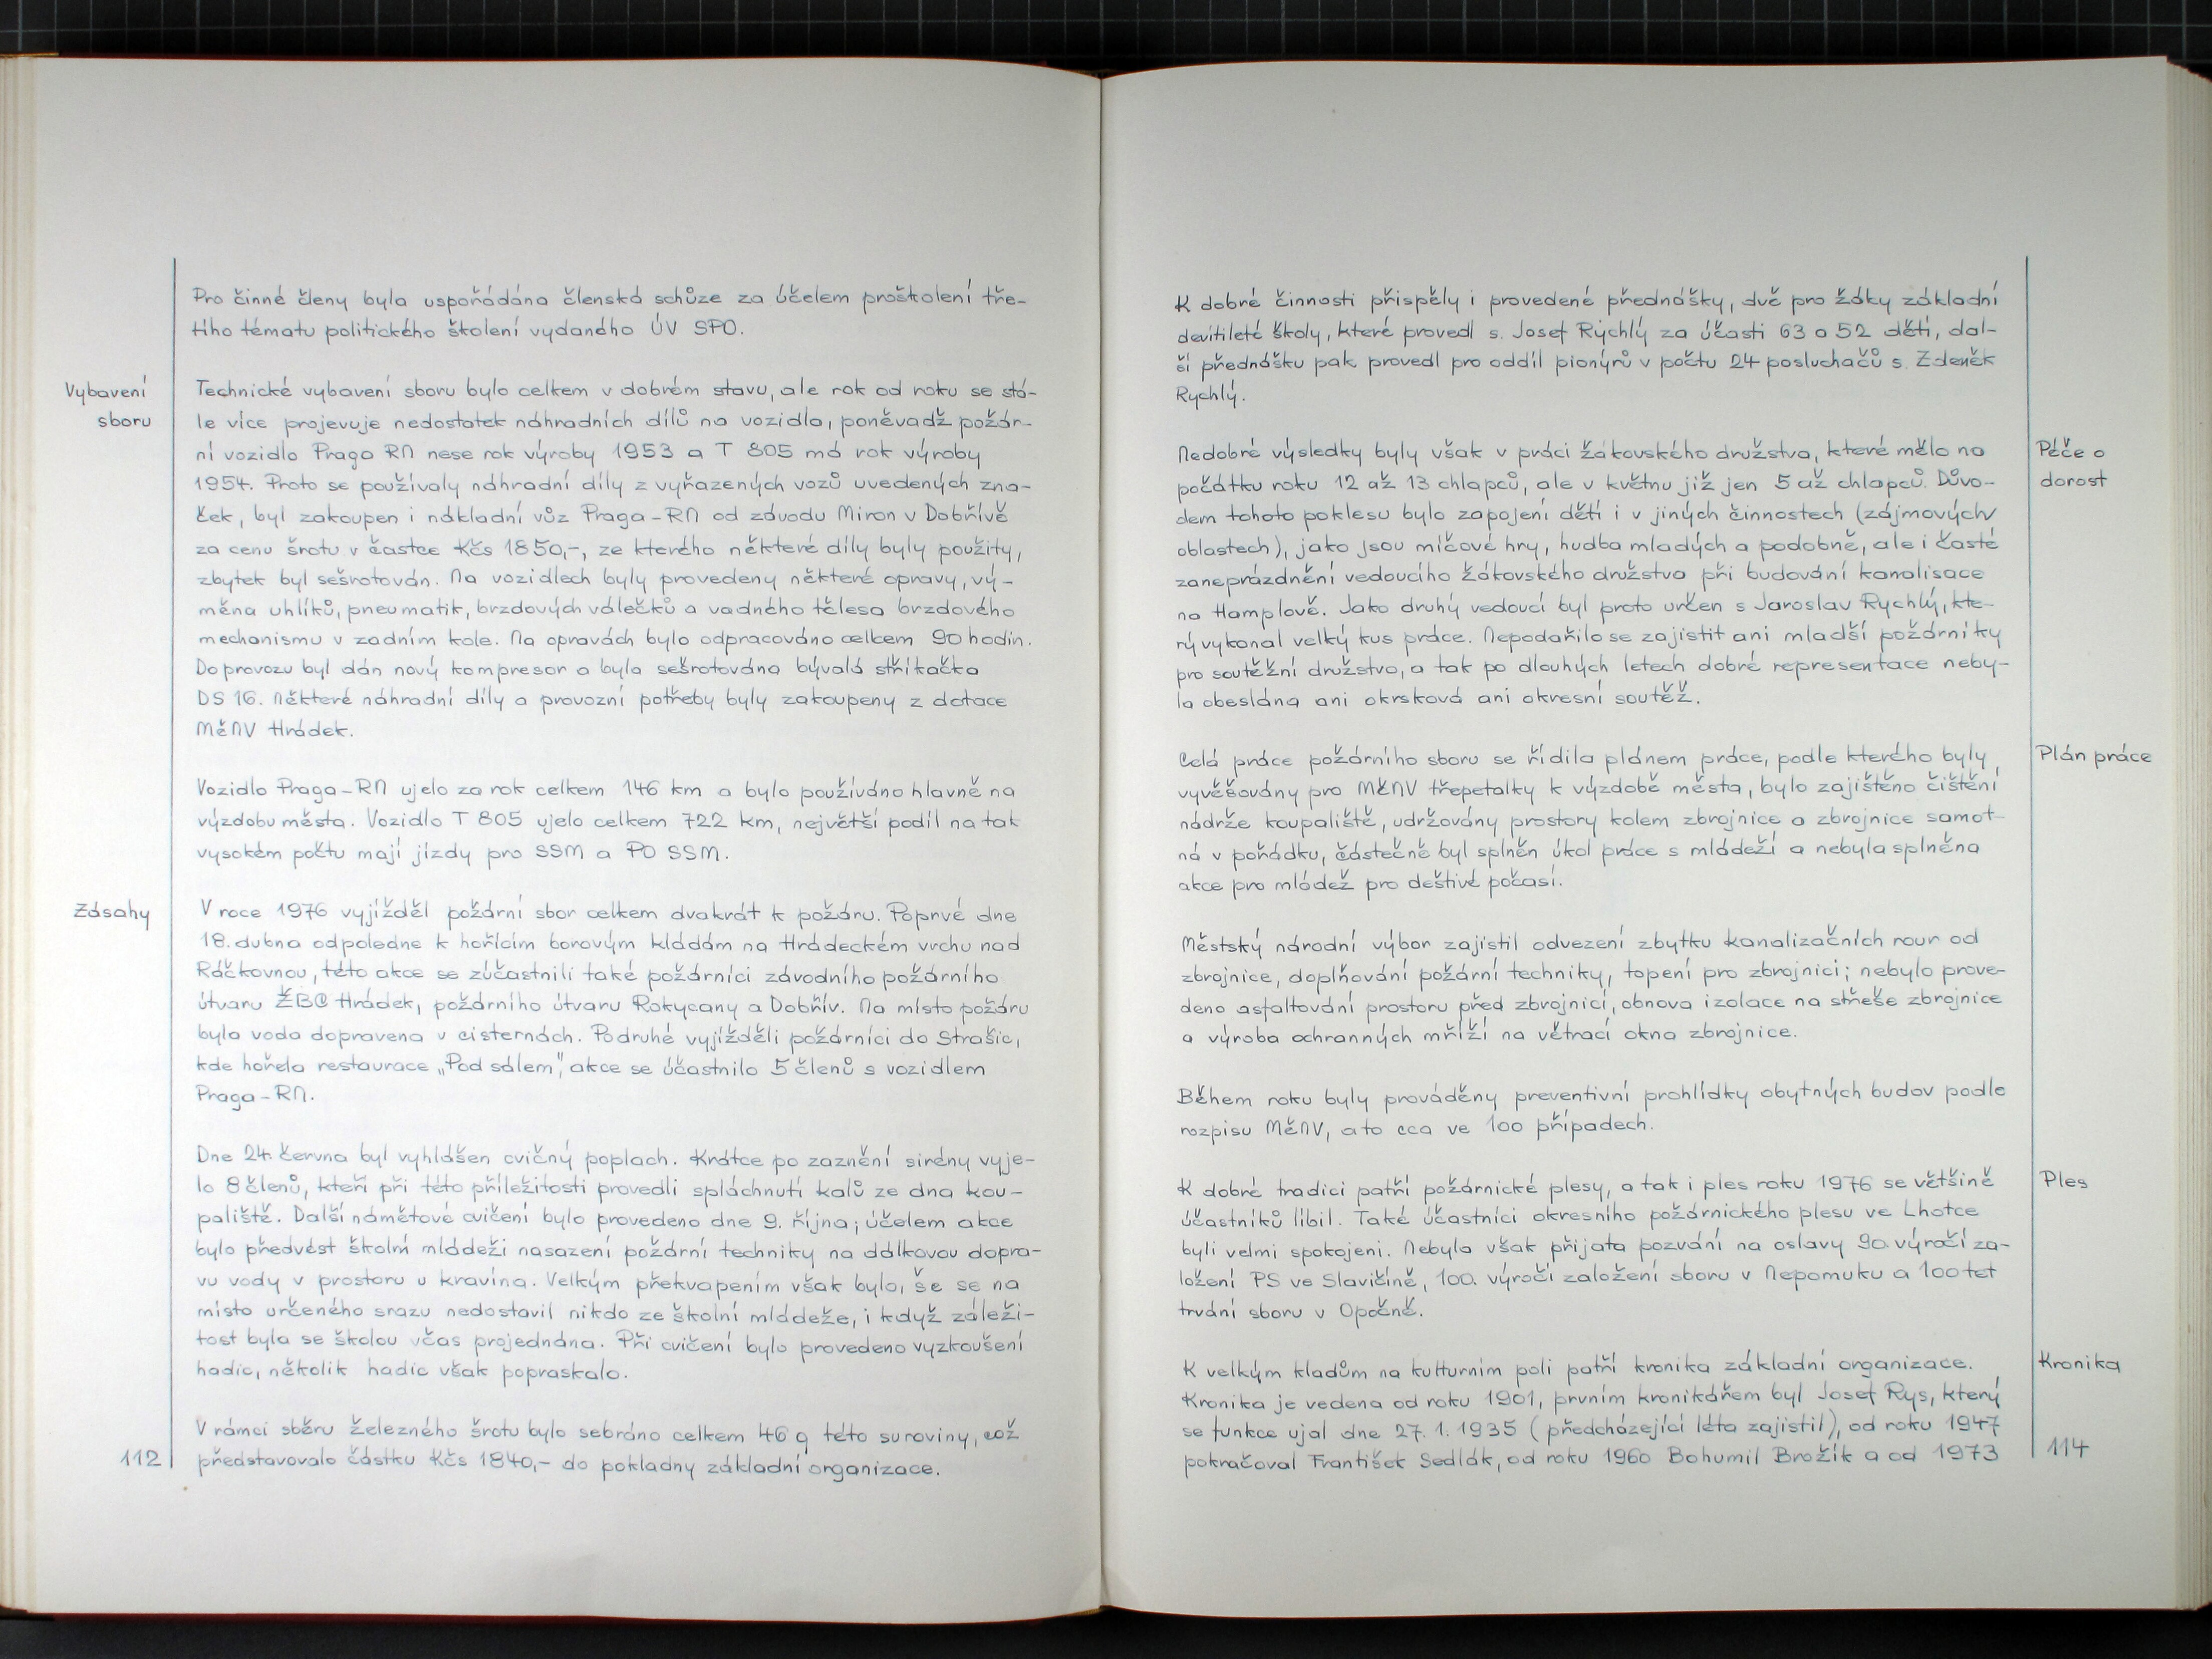 Pro činné členy byla uspořádána členská schůze za účelem proškolení tře-
tího tématu politického školení vydaného ÚV SPO.
Vybavení
sboru
Technické vybavení sboru bylo celkem v dobrém stavu, ale rok od roku se stá-
le více projevuje nedostatek náhradních dílů na vozidla, poněvadž požár-
ní vozidlo Praga RN nese rok výroby 1953 a T 805 má rok výroby
1954. Proto se používaly náhradní díly z vyřazených vozů uvedených zna-
ček, byl zakoupen i nákladní vůz Praga-RN od závodu Miron v Dobřívě
za cenu šrotu v částce Kčs 1850,-, ze kterého některé díly byly použity,
zbytek byl sešrotován. Na vozidlech byly provedeny některé opravy, vý-
měna uhlíků, pneumatik, brzdových válečků a vadného tělesa brzdového
mechanismu v zadním kole. Na opravách bylo odpracováno celkem 90 hodin.
Do provozu byl dán nový kompresor a byla sešrotována bývalá stříkačka
DS 16. Některé náhradní díly a provozní potřeby byly zakoupeny z dotace
MěNV Hrádek.
Vozidlo Praga-RN ujelo za rok celkem 146 km a bylo používáno hlavně na
výzdobu města. Vozidlo T 805 ujelo celkem 722 km, největší podíl na tak
vysokém počtu mají jízdy pro SSM a PO SSM.
Zásahy
V roce 1976 vyjížděl požární sbor celkem dvakrát k požáru. Poprvé dne
18. dubna odpoledne k hořícím borovým kládám na Hrádeckém vrchu nad
Ráčkovnou, této akce se zúčastnili také požárníci závodního požárního
útvaru ŽBC Hrádek, požárního útvaru Rokycany a Dobřív. Na místo požáru
byla voda dopravena v cisternách. Podruhé vyjížděli požárníci do Strašic,
kde hořela restaurace „Pod sálem", akce se účastnilo 5 členů s vozidlem
Praga-RN.
Dne 24. června byl vyhlášen cvičný poplach. Krátce po zaznění sirény vyje-
lo 8 členů, kteří při této příležitosti provedli spláchnutí kalů ze dna kou-
paliště. Další námětové cvičení bylo provedeno dne 9. října; účelem akce
bylo předvést školní mládeži nasazení požární techniky na dálkovou dopra-
vu vody v prostoru u kravína. Velkým překvapením však bylo, še se na
místo určeného srazu nedostavil nikdo ze školní mládeže, i když záleži-
tost byla se školou včas projednána. Při cvičení bylo provedeno vyzkoušení
hadic, několik hadic však popraskalo.
V rámci sběru železného šrotu bylo sebráno celkem 46 q této suroviny, což
představovalo částku Kčs 1840,- do pokladny základní organizace.
112
K dobré činnosti přispěly i provedené přednášky, dvě pro žáky základní
devítileté školy, které provedl s. Josef Rychlý za účasti 63 a 52 dětí, dal-
ší přednášku pak provedl pro oddíl pionýrů v počtu 24 posluchačů s. Zdeněk
Rychlý.
Péče o
dorost
Nedobré výsledky byly však v práci žákovského družstva, které mělo na
počátku roku 12 až 13 chlapců, ale v květnu již jen 5 až chlapců. Důvo-
dem tohoto poklesu bylo zapojení dětí i v jiných činnostech (zájmových
oblastech), jako jsou míčové hry, hudba mladých a podobně, ale i časté
zaneprázdnění vedoucího žákovského družstva při budování kanalisace
na Hamplově. Jako druhý vedoucí byl proto určen s Jaroslav Rychlý, kte-
rý vykonal velký kus práce. Nepodařilo se zajistit ani mladší požárníky
pro soutěžní družstvo, a tak po dlouhých letech dobré representace neby-
la obeslána ani okrsková ani okresní soutěž.
Plán práce
Celá práce požárního sboru se řídila plánem práce, podle kterého byly
vyvěšovány pro MěNV třepetalky k výzdobě města, bylo zajištěno čištění
nádrže koupaliště, udržovány prostory kolem zbrojnice a zbrojnice samot-
ná v pořádku, částečně byl splněn úkol práce s mládeží a nebyla splněna
akce pro mládež pro deštivé počasí.
Městský národní výbor zajistil odvezení zbytku kanalizačních rour od
zbrojnice, doplňování požární techniky, topení pro zbrojnici; nebylo prove-
deno asfaltování prostoru před zbrojnicí, obnova izolace na střeše zbrojnice
a výroba ochranných mříží na větrací okna zbrojnice.
Během roku byly prováděny preventivní prohlídky obytných budov podle
rozpisu MěNV, a to cca ve 100 případech.
Ples
K dobré tradici patří požárnické plesy, a tak i ples roku 1976 se většině
účastníků líbil. Také účastníci okresního požárnického plesu ve Lhotce
byli velmi spokojeni. Nebyla však přijata pozvání na oslavy 90. výročí za-
ložení PS ve Slavičíně, 100. výročí založení sboru v Nepomuku a 100 let
trvání sboru v Opočně.
Kronika
K velkým kladům na kulturním poli patří kronika základní organizace.
Kronika je vedena od roku 1901, prvním kronikářem byl Josef Rys, který
se funkce ujal dne 27. 1. 1935 (předcházející léta zajistil), od roku 1947
pokračoval František Sedlák, od roku 1960 Bohumil Brožík a od 1973
114